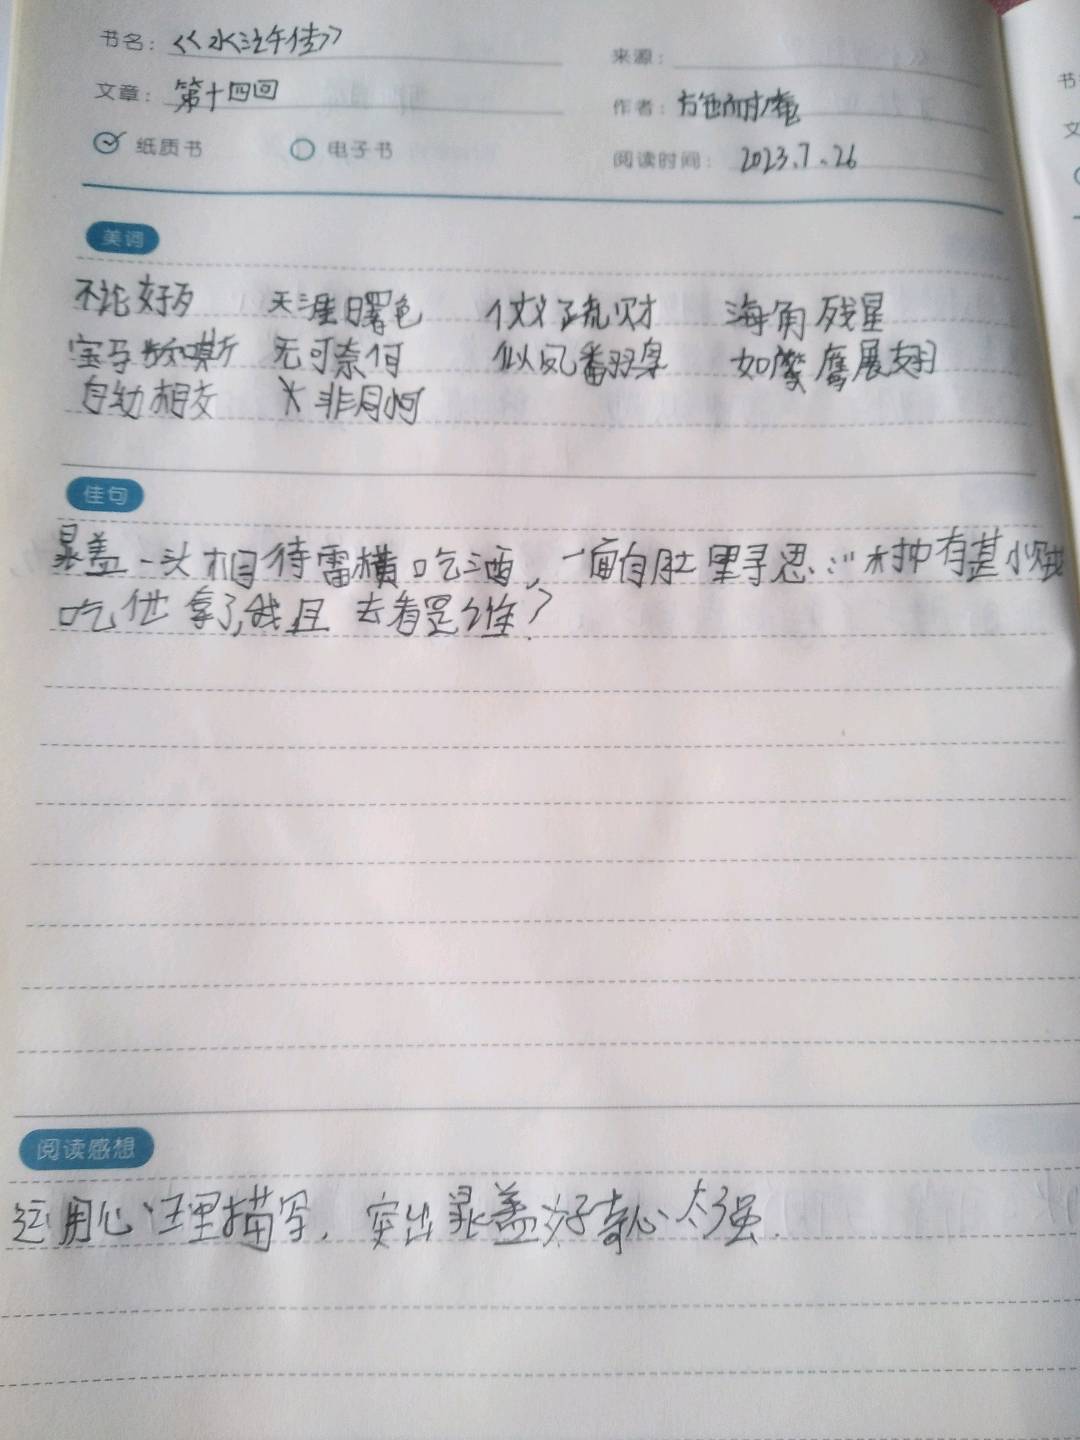 书名: 《水浒传》
来源:
文章: 第十四回
作者: 施耐庵
纸质书 电子书
阅读时间: 2023.7.26
美词
不论好歹 天涯曙色 仗义疏财 海角残星
宝马嘶 无可奈何 似凤翻身 如鹰展翅
自幼相交 莫非
佳句
晁盖一头相待雷横吃酒，一面自肚里寻思：“村中有甚小贼
吃他拿了,我且去看是谁?
阅读感想
运用心理描写，突出晁盖好奇心太强.